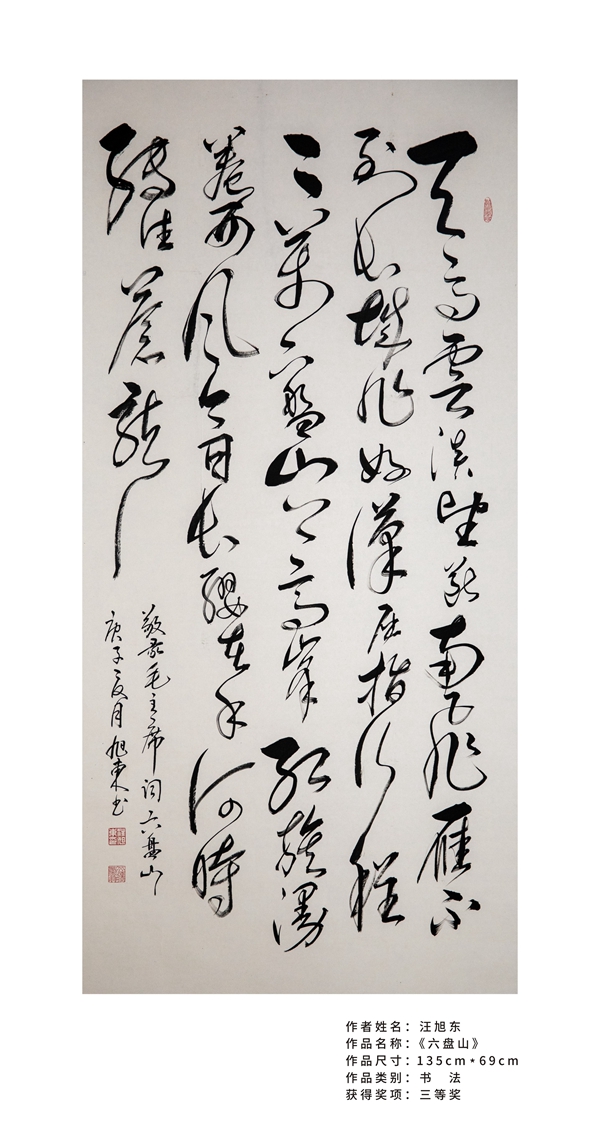 天高雲淡望斷南飛雁不
到長城非好漢屈指行程
二萬六盤山上高峰紅旗漫
卷西風今日長纓在手何時
縛住蒼龍
敬录毛主席词六盘山
庚子夏月旭東书
作者姓名：汪旭东
作品名称：《六盘山》
作品尺寸：135cm*69cm
作品类别：书 法
获得奖项：三等奖